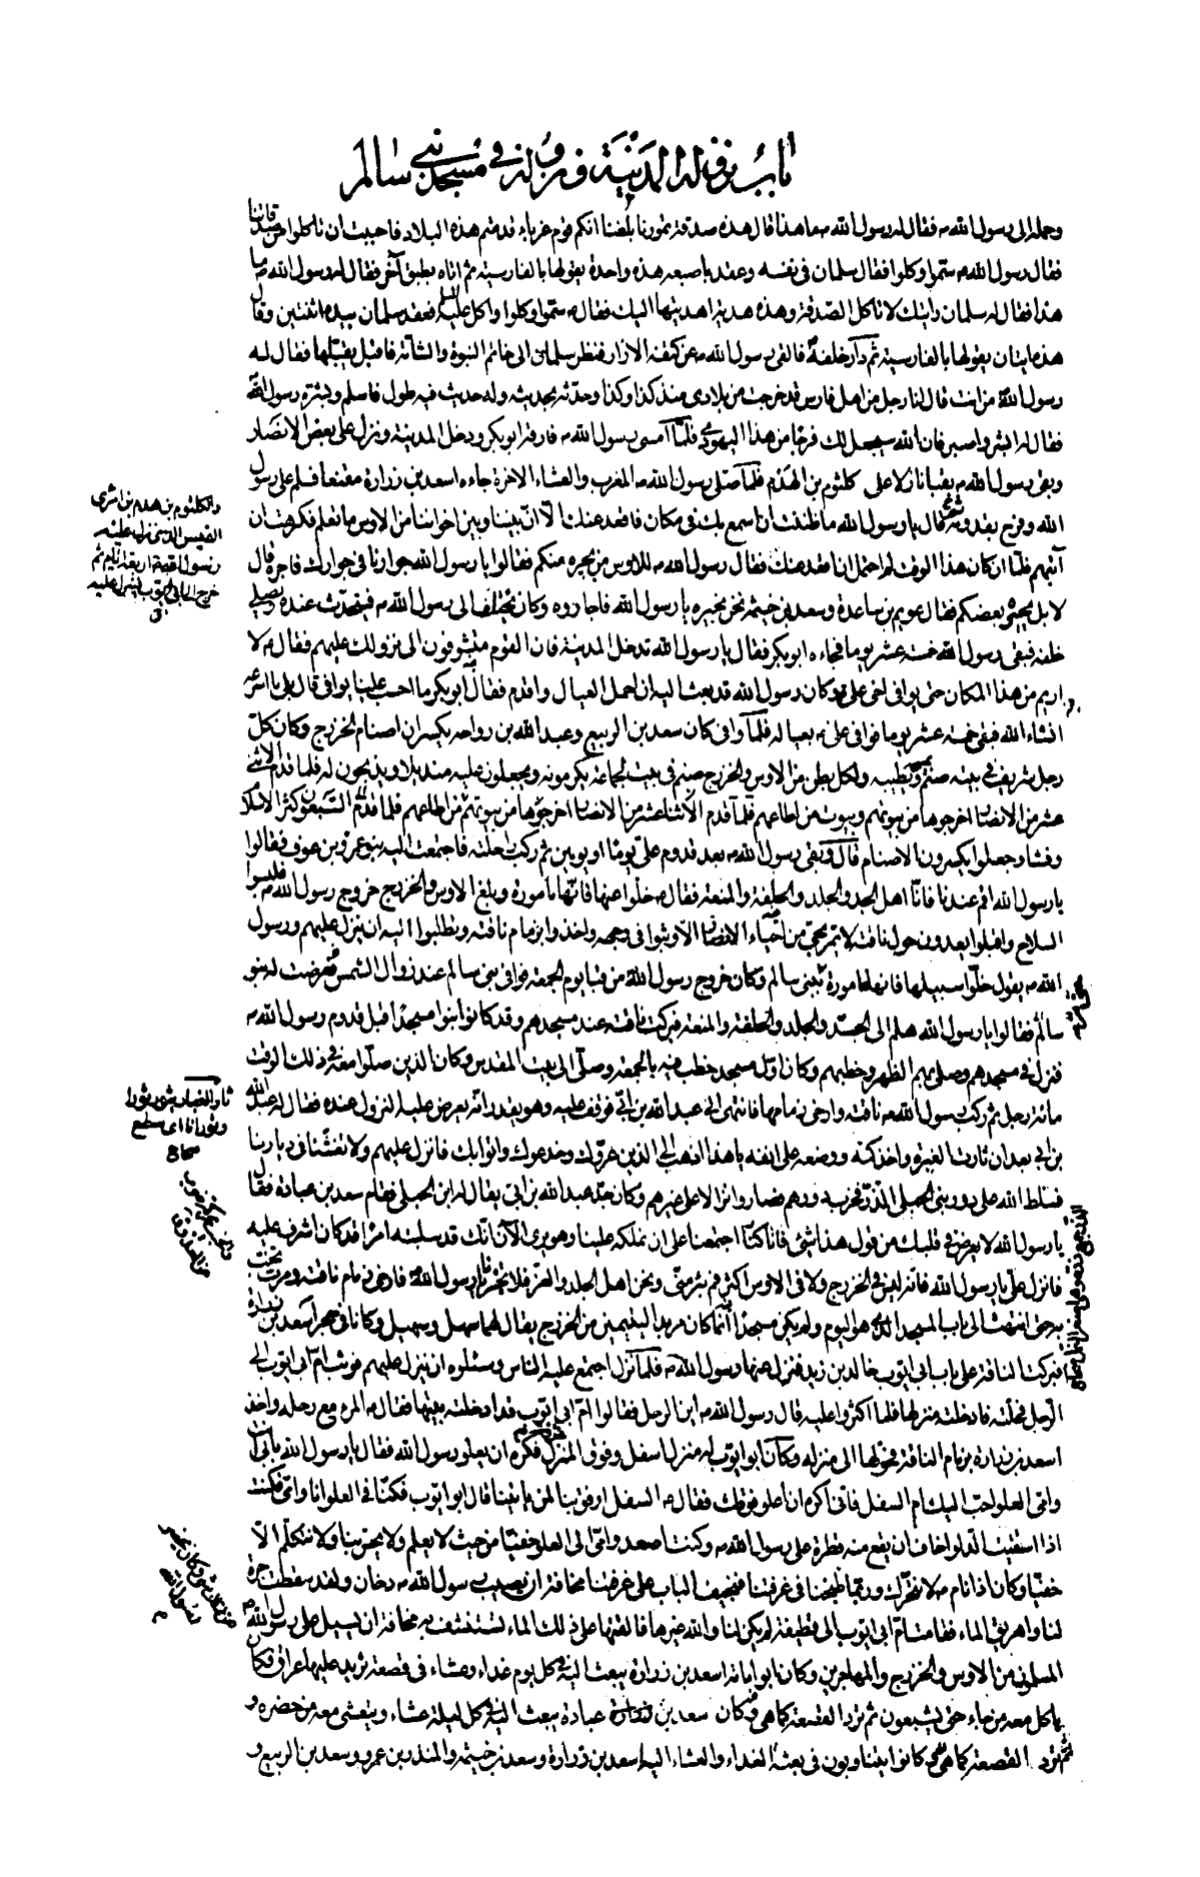 باب نزوله المدينة ونزوله في مسجد بني سالم
وحمله الى رسول الله ص فقال له رسول الله ص ما هذا قال هذه صدقة تمورنا بلغنا انكم قوم غرباء قدمتم هذه البلاد فاحببت ان تاكلوا من صدقاتنا
فقال رسول الله ص سموا وكلوا فقال سلمان في نفسه وعقد باصبعه هذه واحدة يقولها بالفارسية ثم اتاه بطبق آخر فقال له رسول الله ص ما
هذا فقال له سلمان رايتك لا تاكل الصدقة وهذه هدية اهديتها اليك فقال ص سموا وكلوا واكل عليه السلم فعقد سلمان بيده اثنتين وقال
هذه اثنتان يقولها بالفارسية ثم دار خلفه فالقى رسول الله ص عن كتفه الازار فنظر سلمان الى خاتم النبوة والشامة فاقبل يقبلها فقال له
رسول الله من انت قال انا رجل من اهل فارس قد خرجت من بلادى منذ كذا وكذا وحدثه بحديثه وله حديث فيه طول فاسلم وبشره رسول الله
فقال له ابشر واصبر فان الله سيجعل لك فرجا من هذا اليهودي فلما امسى رسول الله ص فارقه ابو بكر ودخل المدينة ونزل على بعض الانصار
وبقى رسول الله ص بقبا نازلا على كلثوم بن الهدم فلما صلى رسول الله ص المغرب والعشاء الاخرة جاءه اسعد بن زرارة مقنعا فسلم على رسول
الله وفرح بقدومه ثم قال يا رسول الله ما ظننت ان اسمع بك في مكان فاقعد عنك الا ان بيننا وبين اخواننا من الاوس ما تعلم فكرهت ان
آتيهم فلما ان كان هذا الوقت لم احتمل ان اقعد عنك فقال رسول الله ص للاوس من يجيره منكم فقالوا يا رسول الله جوارنا في جوارك فاجره قال
لا بل يجيره بعضكم فقال عويم بن ساعدة وسعد بن خيثمة نحن نجيره يا رسول الله فاجاروه وكان يختلف الى رسول الله ص فيتحدث عنده ويصلي
خلفه فبقى رسول الله خمسة عشر يوما فجاءه ابو بكر فقال يا رسول الله تدخل المدينة فان القوم متشوقون الى نزولك عليهم فقال ص لا
اريم من هذا المكان حتى يوافى اخى علي وكان رسول الله قد بعث اليه ان احمل العيال واقدم فقال ابو بكر ما احسب عليا يوافى قال بلى ما اسرعه
انشاء الله فبقى خمسة عشر يوما فوافى على بعياله فلما وافى كان سعد بن الربيع وعبد الله بن رواحه يكسران اصنام الخزرج وكان كل
رجل شريف في بيته صنم يمسحه ويطيبه ولكل بطن من الاوس والخزرج صنم في بيت لجماعة يكرمونه ويجعلون عليه منديلا ويذبحون له فلما قدم الاثنى
عشر من الانصار اخرجوها من بيوتهم وبيوت من اطاعهم فلما قدم السبعون كثر الاسلام
وفشا وجعلوا يكسرون الاصنام قال وبقى رسول الله ص بعد قدوم علي يوما او يومين ثم ركب راحلته فاجتمعت اليه بنو عمرو بن عوف فقالوا
يا رسول الله اقم عندنا فانا اهل الجد والجلد والحلقة والمنعة فقال ص خلوا عنها فانها مامورة وبلغ الاوس والخزرج خروج رسول الله ص فلبسوا
السلاح واقبلوا يعدون حول ناقته لا يمر بحي من احياء الانصار الا وثبوا في وجهه واخذوا بزمام ناقته وتطلبوا اليه ان ينزل عليهم ورسول
الله ص يقول خلوا سبيلها فانها مامورة حتى بنى سالم وكان خروج رسول الله من قبا يوم الجمعة فوافى بنى سالم عند زوال الشمس فتعرضت له بنو
سالم فقالوا يا رسول الله هلم الى الجد والجلد والحلقة والمنعة فبركت ناقته عند مسجدهم وقد كانوا بنوا مسجدا قبل قدوم رسول الله ص
فنزل في مسجدهم وصلى بهم الظهر وخطبهم وكان اول مسجد خطب فيه بالجمعة وصلى الى بيت المقدس وكان الذين صلوا معه في ذلك الوقت
مائة رجل ثم ركب رسول الله ص ناقته وارخى زمامها فانتهى الى عبد الله بن ابي فوقف عليه وهو يقدر انه يعرض عليه النزول عنده فقال له عبد الله
بن ابى بعد ان ثارت الغبرة واخذ كمه ووضعه على انفه يا هذا اذهب الى الذين غروك وخدعوك واتوا بك فانزل عليهم ولا تغشنا في ديارنا
فسلط الله على دور بنى الحبلى الذر فخرب دورهم فصاروا نزالا على غيرهم وكان جد عبد الله بن ابى يقال له ابن الحبلى فقام سعد بن عبادة فقال
يا رسول الله لا يعرض في قلبك من قول هذا شئ فانا كنا اجتمعنا على ان نملكه علينا وهو يرى الان انك قد سلبته امرا قد كان اشرف عليه
فانزل علي يا رسول الله فانه ليس في الخزرج ولا في الاوس اكثر فم بئر منى ونحن اهل الجلد والعز فلا تجزنا يا رسول الله فارخى زمام ناقته ومرت تخب
به حتى انتهت الى باب المسجد الذي هو اليوم ولم يكن مسجدا انما كان مربدا ليتيمين من الخزرج يقال لهما سهل وسهيل وكانا في حجر اسعد بن زرارة
فبركت الناقة على باب ابى ايوب خالد بن زيد فنزل عنها رسول الله ص فلما نزل اجتمع عليه الناس وسئلوه ان ينزل عليهم فوثبت ام ابى ايوب الى
الرحل فحلته فادخلته منزلها فلما اكثروا عليه قال رسول الله ص اين الرحل فقالوا ام ابى ايوب قد ادخلته بيتها فقال ص المرء مع رحله واخذ
اسعد بن زرارة بزمام الناقة فحولها الى منزله وكان ابو ايوب له منزل اسفل وفوق المنزل غرفة فكره ان يعلو رسول الله فقال يا رسول الله بابى انت
وامى العلو احب اليك ام السفل فانى اكره ان اعلو فوقك فقال ص السفل ارفق بنا لمن ياتينا قال ابو ايوب فكنا في العلو انا وامى فكنت
اذا استقيت الدلو اخاف ان يقع منه قطرة على رسول الله ص وكنت اصعد وامى الى العلو خفيا من حيث لا يعلم ولا يحس بنا ولا نتكلم الا
خفيا وكان اذا نام ص لا نتحرك وربما طبخنا في غرفتنا فنجيف الباب على غرفتنا مخافة ان يصيب رسول الله ص دخان ولقد سقطت جرة
لنا واهريق الماء فقامت ام ابى ايوب الى قطيفة لم يكن لنا والله غيرها فالقتها على ذلك الماء تستنشف به مخافة ان يسيل على رسول الله
المسلمين من الاوس والخزرج والمهاجرين وكان ابو امامة اسعد بن زرارة يبعث اليه في كل يوم غداء وعشاء في قصعة ثريد عليها عراق فكان
ياكل معه من جاء حتى يشبعون ثم ترد القصعة كما هي وكان سعد بن عبادة يبعث اليه في كل ليلة عشاء ويتعشى معه من حضره و
ترد القصعة كما هي وكانوا يتناوبون في بعثه الغداء والعشاء اليه اسعد بن زرارة وسعد بن خيثمة والمنذر بن عمرو وسعد بن الربيع و
والكلثوم بن هدم بن امرئ
القيس الذي نزل عليه
رسول الله اربعة ايام ثم
خرج الى ابي ايوب فنزل عليه
ق
ثار الغبار يثور ثورا
وثورانا اى سطع
صحاح